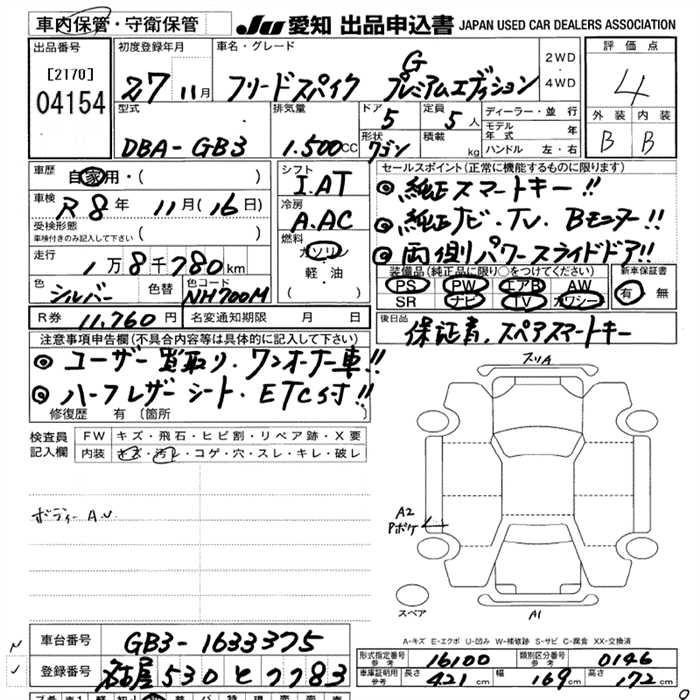 車内保管・守衛保管
JU 愛知 出品申込書 JAPAN USED CAR DEALERS ASSOCIATION
出品番号
[2170]
04154
初度登録年月
27 11月
車名・グレード
フリードスパイク G プレミアムエディション
2WD
・
4WD
評価点
4
外装 内装
B B
型式
DBA-GB3
排気量
1.500CC
ドア
5
定員
5人
形状
ワゴン
積載
kg
ディーラー・並行
モデル年式 年
ハンドル 左・右
車歴
自家用・( )
車検
R8年 11月(16日)
受検形態
車検付きのみ記入して下さい ( )
走行
1万8千780km
色
シルバー
色替
色コード
NH700M
シフト
I.AT
冷房
A.AC
燃料
ガソリン
・
軽・油
( )
セールスポイント(正常に機能するものに限ります)
◎純正スマートキー!!
◎純正ナビ・TV・Bモニター!!
◎両側パワースライドドア!!
装備品(純正品に限り○をつけてください)
PS PW エアB AW
SR ナビ TV カワシート
新車保証書
有 無
R券 11.760円
名変通知期限 月 日
後日品
保証書、スペアスマートキー
注意事項申告欄(不具合内容等は具体的に記入して下さい)
◎ユーザー買取り・ワンオーナー車!!
◎ハーフレザーシート・ETC付!!
修復歴 有 〔箇所
検査員
記入欄
FW キズ・飛石・ヒビ割・リペア跡・X要
内装 キズ・汚レ・コゲ・穴・スレ・キレ・破レ
ボディー A.U.
スリA
A2
Pポケ
スペア
A1
A-キズ E-エクボ U-凹み W-補修跡 S-サビ C-腐食 XX-交換済
車台番号
GB3-1633375
登録番号
名古屋 530 と 7783
形式指定番号
参考
16100
類別区分番号
参考
0146
車庫証明用
参考
長さ
421cm
幅
169cm
高さ
172cm